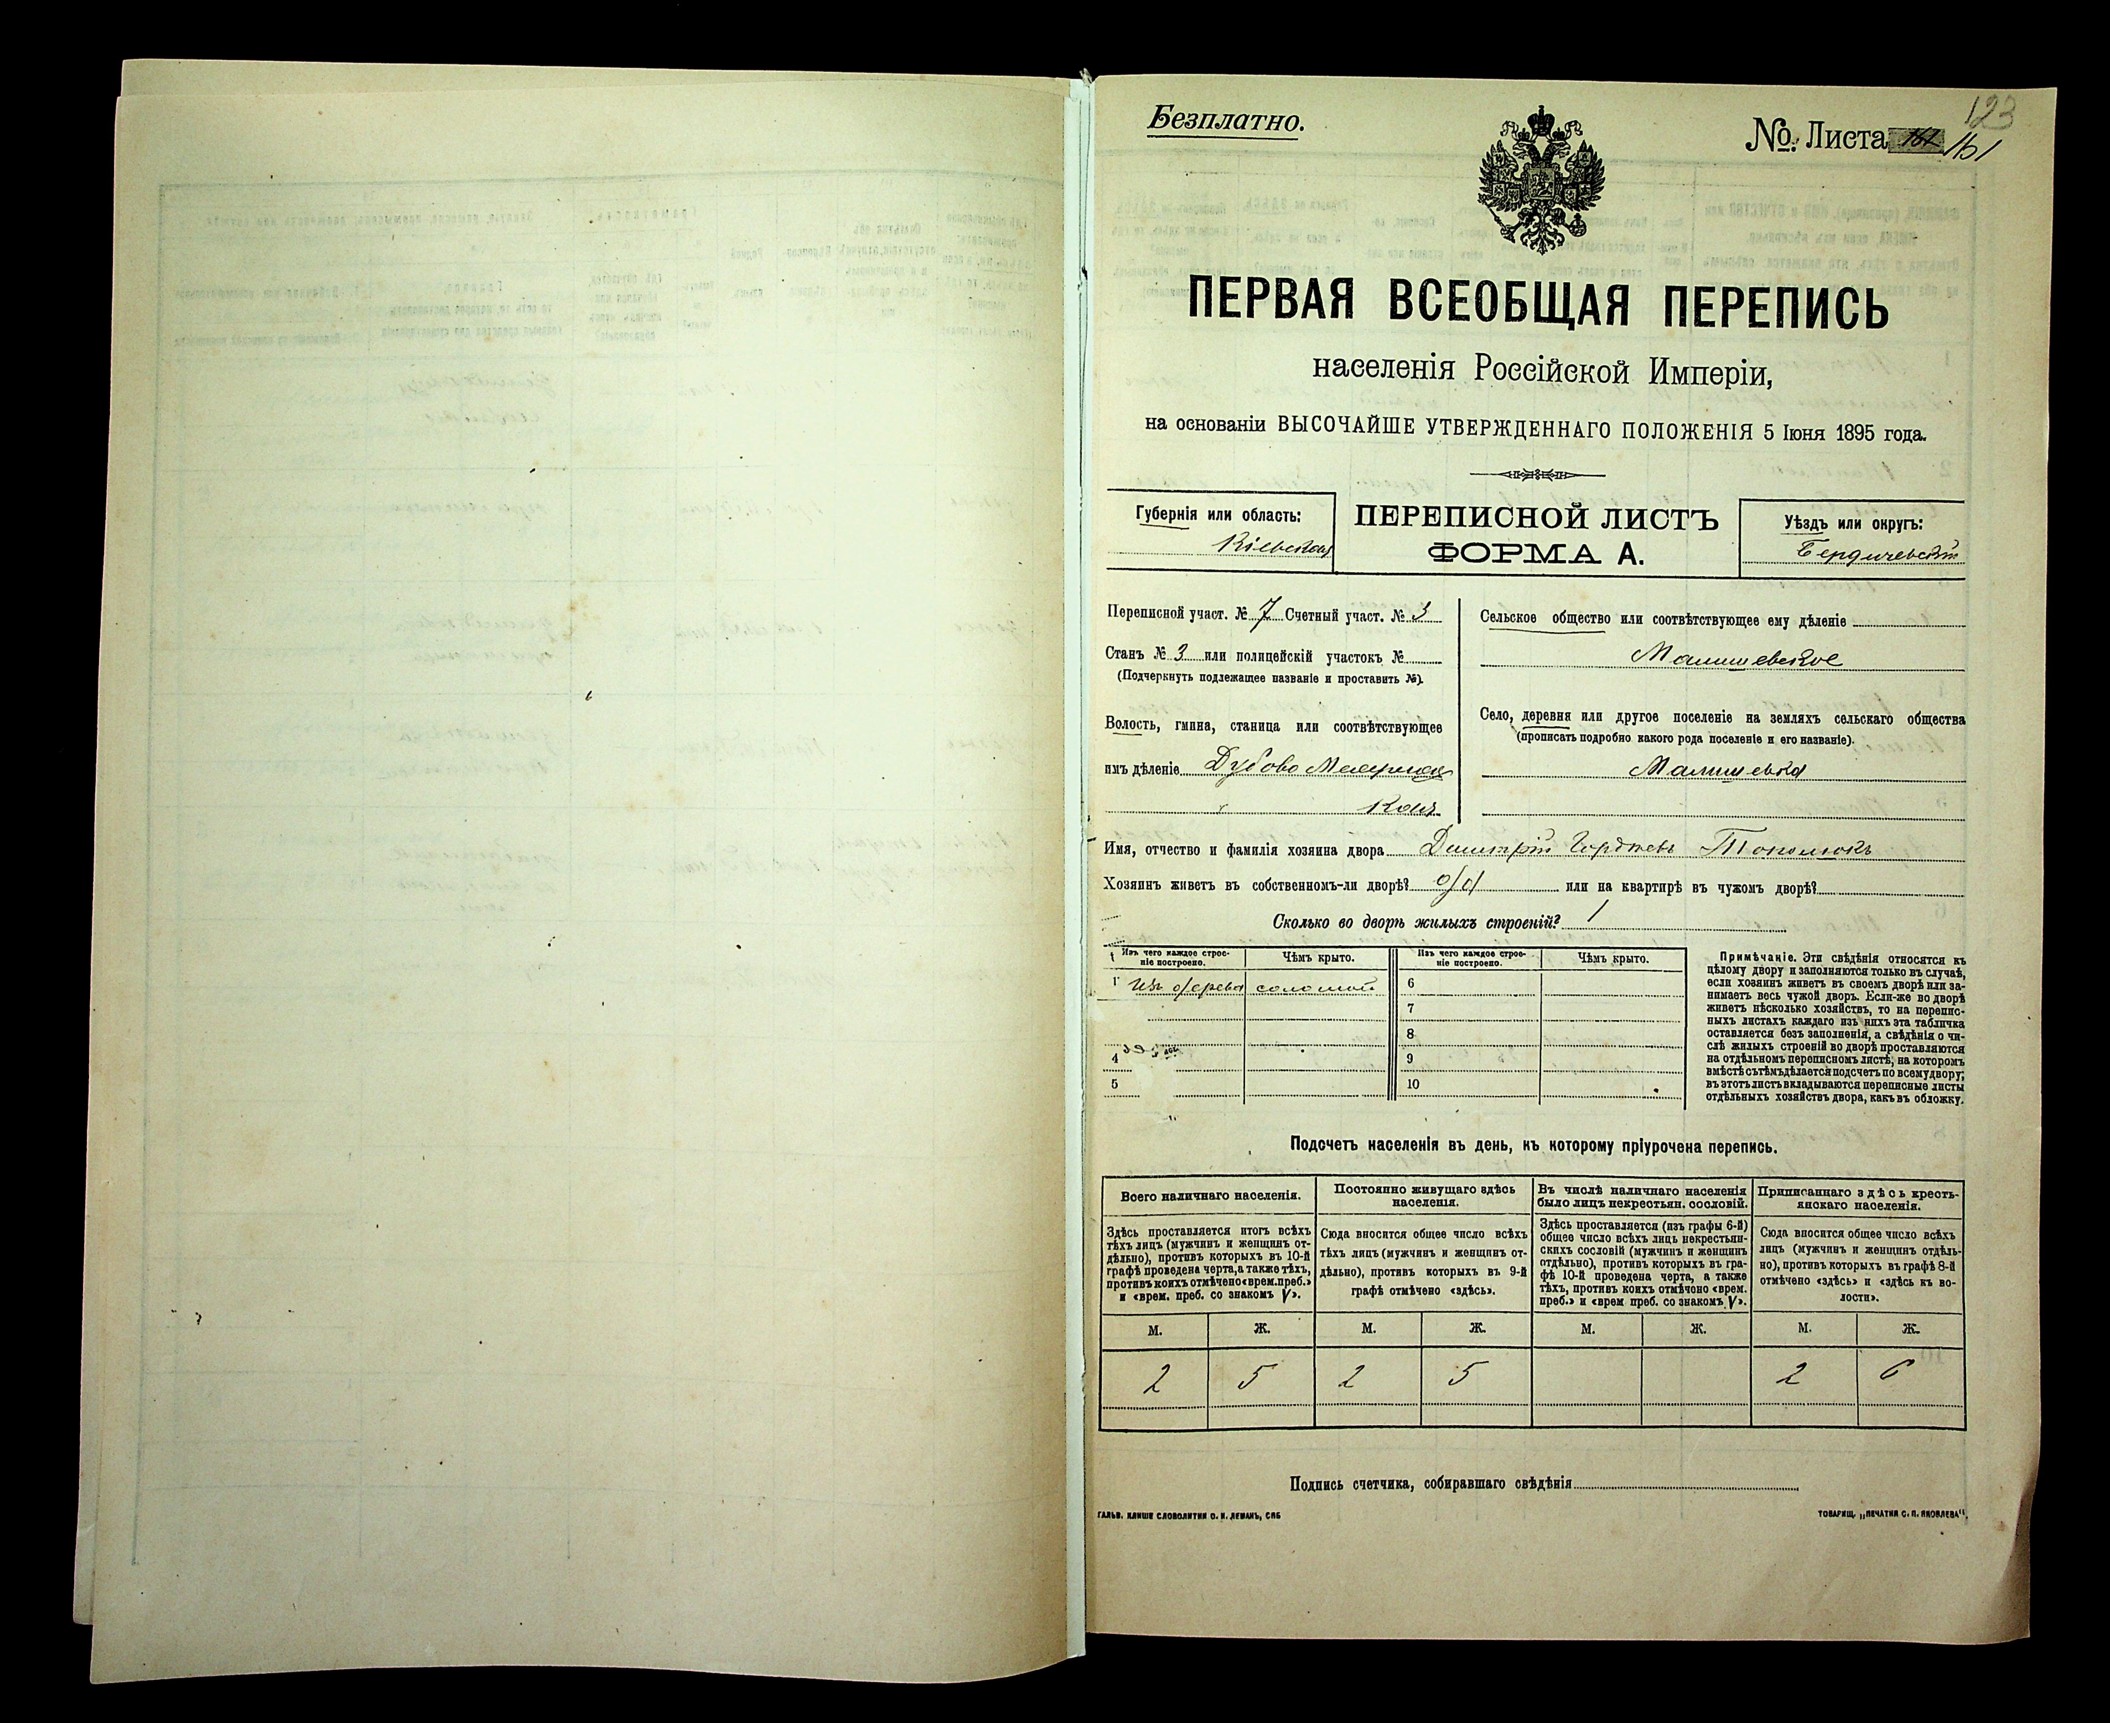 Безплатно.
№ Листа 161
123
ПЕРВАЯ ВСЕОБЩАЯ ПЕРЕПИСЬ
населенія Россійской Имперіи,
на основаніи ВЫСОЧАЙШЕ УТВЕРЖДЕННАГО ПОЛОЖЕНІЯ 5 Іюня 1895 года.
Губернія или область:
Кіевская
ПЕРЕПИСНОЙ ЛИСТЪ
ФОРМА А.
Уѣздъ или округъ:
Бердичевскій
Переписной участ. № 7 Счетный участ. № 3
Станъ № 3 или полицейскій участокъ №
(Подчеркнуть подлежащее названіе и проставить №).
Волость, гмина, станица или соотвѣтствующее
имъ дѣленіе Дубово Махаринец
кая
Сельское общество или соотвѣтствующее ему дѣленіе
Малишевское
Село, деревня или другое поселеніе на земляхъ сельскаго общества
(прописать подробно какого рода поселеніе и его названіе).
Малишевка
Имя, отчество и фамилія хозяина двора Димитрій
Хозяинъ живетъ въ собственномъ-ли дворѣ? да или на квартирѣ въ чужомъ дворѣ?
Сколько во дворѣ жилыхъ строеній? 1
Изъ чего каждое строе-
ніе построено.
Чѣмъ крыто.
Изъ чего каждое строе-
ніе построено.
Чѣмъ крыто.
1 Изъ дерева соломой 6
7
8
4 9
5 10
Примѣчаніе. Эти свѣдѣнія относятся къ
цѣлому двору и заполняются только въ случаѣ,
если хозяинъ живетъ въ своемъ дворѣ или за-
нимаетъ весь чужой дворъ. Если-же во дворѣ
живетъ нѣсколько хозяйствъ, то на перепис-
ныхъ листахъ каждаго изъ нихъ эта табличка
оставляется безъ заполненія, а свѣдѣнія о чи-
слѣ жилыхъ строеній во дворѣ проставляются
на отдѣльномъ переписномъ листѣ, на которомъ
вмѣстѣ съ тѣмъ дѣлается подсчетъ по всему двору;
въ этотъ листъ вкладываются переписные листы
отдѣльныхъ хозяйствъ двора, какъ въ обложку.
Подсчетъ населенія въ день, къ которому пріурочена перепись.
Всего наличнаго населенія.
Здѣсь проставляется итогъ всѣхъ
тѣхъ лицъ (мужчинъ и женщинъ от-
дѣльно), противъ которыхъ въ 10-й
графѣ проведена черта, а также тѣхъ,
противъ коихъ отмѣчено «врем. преб.»
и «врем. преб. со знакомъ V».
Постоянно живущаго здѣсь
населенія.
Сюда вносится общее число всѣхъ
тѣхъ лицъ (мужчинъ и женщинъ от-
дѣльно), противъ которыхъ въ 9-й
графѣ отмѣчено «здѣсь».
Въ числѣ наличнаго населенія
было лицъ некрестьян. сословій.
Здѣсь проставляется (изъ графы 6-й)
общее число всѣхъ лицъ некрестьян-
скихъ сословій (мужчинъ и женщинъ
отдѣльно), противъ которыхъ въ гра-
фѣ 10-й проведена черта, а также
тѣхъ, противъ коихъ отмѣчено «врем.
преб.» и «врем преб. со знакомъ V».
Приписаннаго здѣсь кресть-
янскаго населенія.
Сюда вносится общее число всѣхъ
лицъ (мужчинъ и женщинъ отдѣль-
но), противъ которыхъ въ графѣ 8-й
отмѣчено «здѣсь» и «здѣсь къ во-
лости».
М. Ж. М. Ж. М. Ж. М. Ж.
2 5 2 5 2 6
Подпись счетчика, собиравшаго свѣдѣнія
ГАЛЬВ. КЛИШЕ СЛОВОЛИТНИ О. И. ЛЕМАНЪ, СПБ
ТОВАРИЩ. „ПЕЧАТНЯ С. П. ЯКОВЛЕВА".